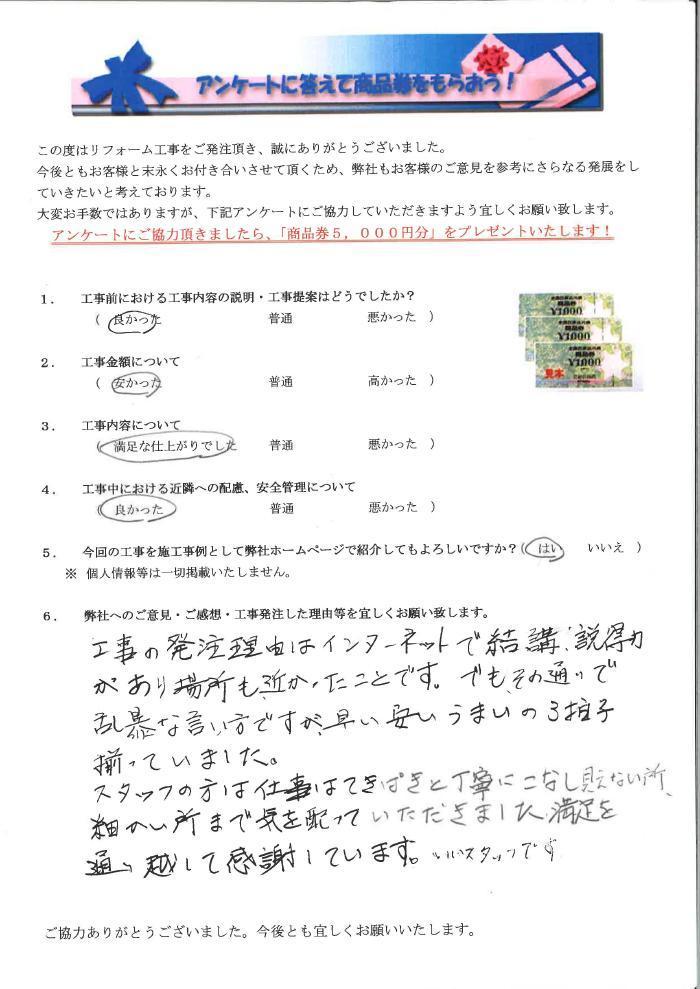 アンケートに答えて商品券をもらおう！
この度はリフォーム工事をご発注頂き、誠にありがとうございました。
今後ともお客様と末永くお付き合いさせて頂くため、弊社もお客様のご意見を参考にさらなる発展をし
ていきたいと考えております。
大変お手数ではありますが、下記アンケートにご協力していただきますよう宜しくお願い致します。
アンケートにご協力頂きましたら、「商品券５，０００円分」をプレゼントいたします！
１． 工事前における工事内容の説明・工事提案はどうでしたか？
（ 良かった 普通 悪かった ）
商品券
¥1000
商品券
¥1000
商品券
¥1000
見本
２． 工事金額について
（ 安かった 普通 高かった ）
３． 工事内容について
（ 満足な仕上がりでした 普通 悪かった ）
４． 工事中における近隣への配慮、安全管理について
（ 良かった 普通 悪かった ）
５． 今回の工事を施工事例として弊社ホームページで紹介してもよろしいですか？（ はい いいえ ）
※ 個人情報等は一切掲載いたしません。
６． 弊社へのご意見・ご感想・工事発注した理由等を宜しくお願い致します。
工事の発注理由はインターネットで結講、説得力
があり場所も近かったことです。でもその通りで
乱暴な言い方ですが、早い安いうまいの3拍子
揃っていました。
スタッフの方は仕事はてきぱきと丁寧にこなし見えない所、
細かい所まで気を配っていただきました。満足を
通り越して感謝しています。いいスタッフです
ご協力ありがとうございました。今後とも宜しくお願いいたします。